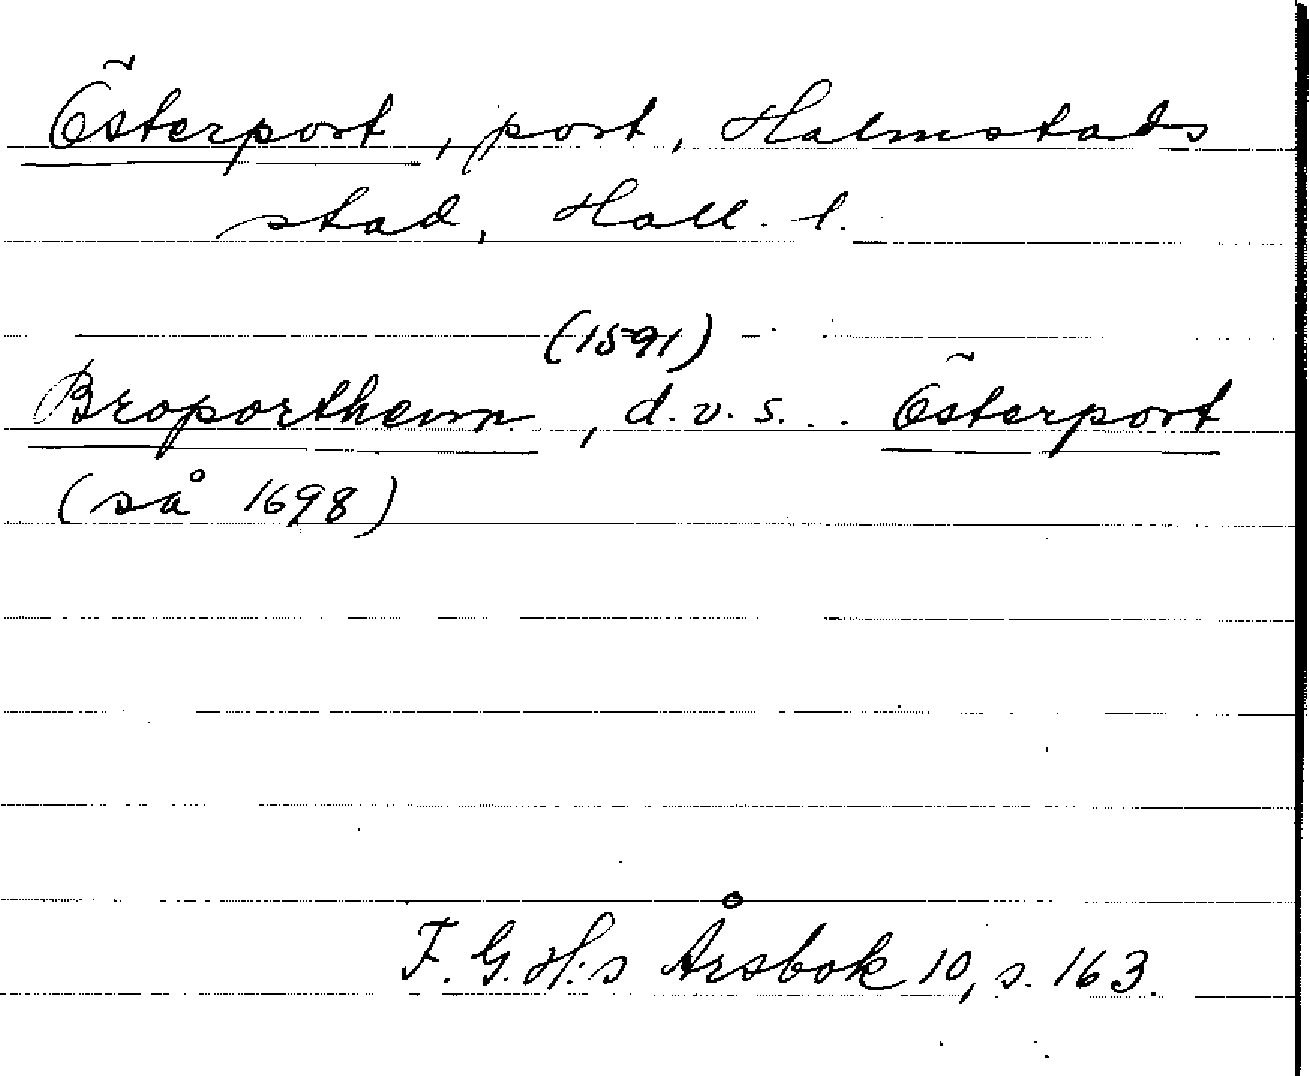 Österport, port, Halmstads
stad, Hall. l.
(1591)
Broporthenn, d.v.s... Österport
(så 1698)
F.G.H:s Årsbok 10, s. 163.